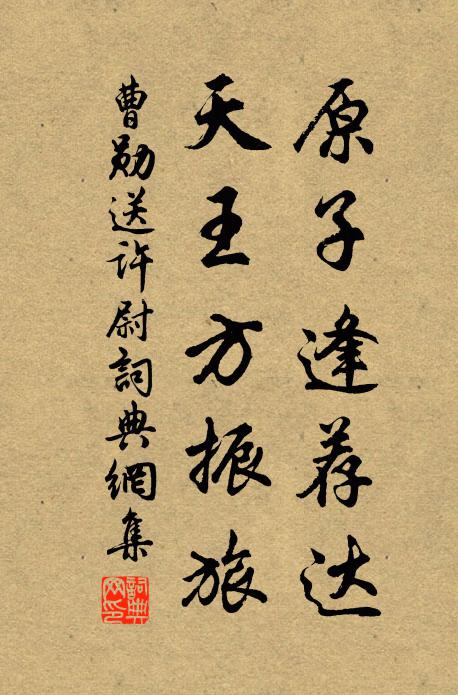 原子逢荐达
天王方振旅
曹勛送许尉詞典網集
詞典网印